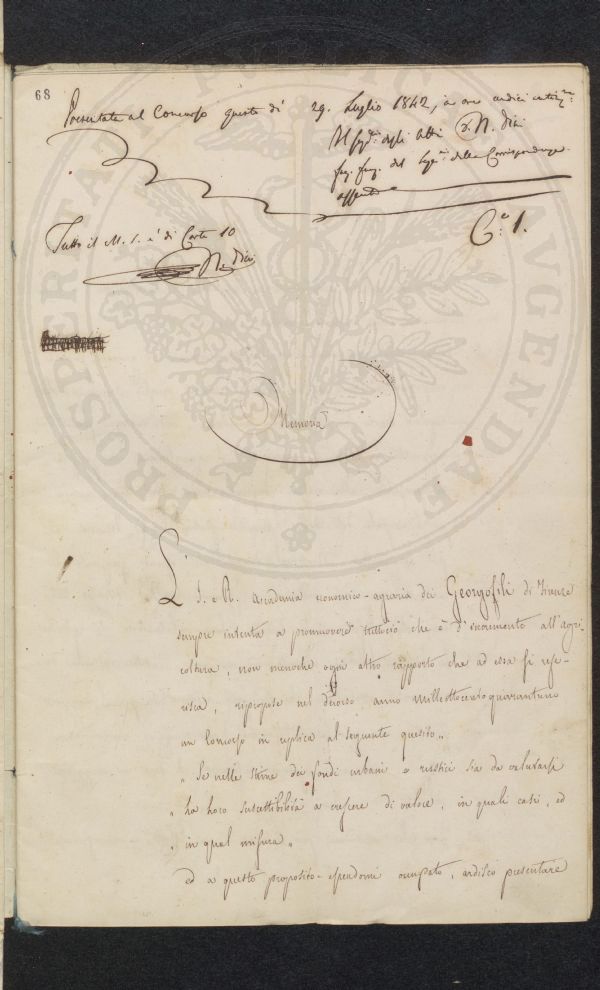 68
Presentata al Concorso questo dì 29. Luglio 1842, a ore undici
Il Seg.rio degli Atti N. Dini
del Seg.rio della Corrispondenza
assente
C.o 1.
Tutto il M. S. è di Carte 10
N. Dini
Memoria
L' I. e R. Accademia economico-agraria dei Georgofili di Firenze
sempre intenta a promuovere tuttociò che è d'incremento all'agri-
coltura, non menochè ogni altro rapporto che ad essa si rife-
risca, ripropose nel decorso anno milleottocento quarantuno
un Concorso in replica al seguente quesito„
„ Se nelle stime dei fondi urbani o rustici sia da valutarsi
„ la loro suscettibilità a crescere di valore, in quali casi, ed
„ in qual misura„
ed a questo proposito essendomi occupato, ardisco presentare
PROSPERITATI PUBLICAE AUGENDAE